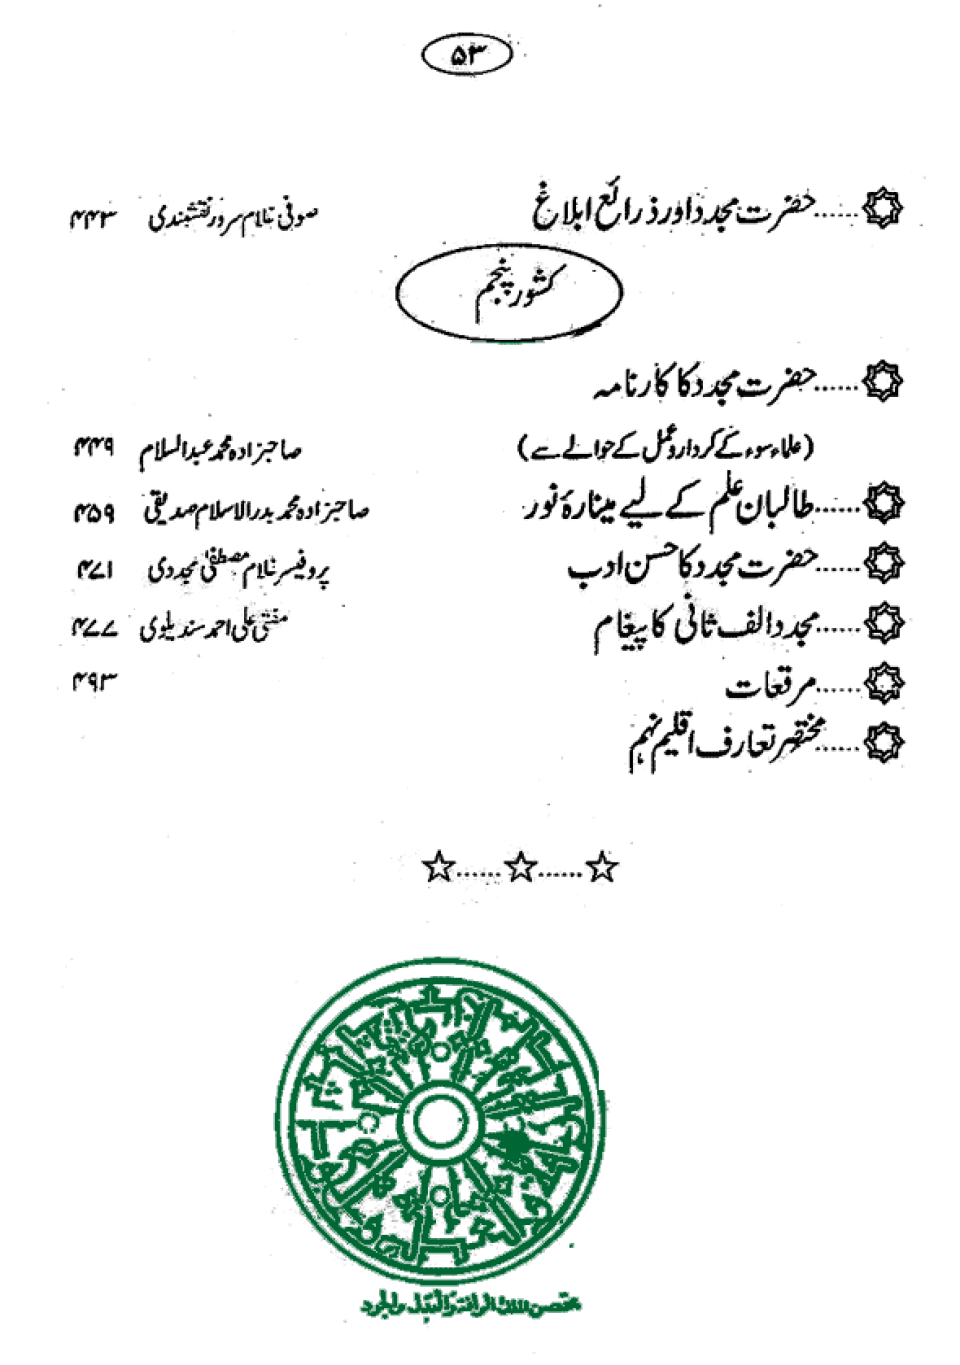 ۵۳
حضرت مجدد اور ذرائع ابلاغ...... صوفی غلام سرور نقشبندی ۴۴۳
کشور پنجم
حضرت مجدد کا کارنامہ......
(علماء سوء کے کردار و عمل کے حوالے سے) صاحبزادہ محمد عبدالسلام ۴۴۹
طالبان علم کے لیے مینارۂ نور...... صاحبزادہ محمد بدر الاسلام صدیقی ۴۵۹
حضرت مجدد کا حسن ادب...... پروفیسر غلام مصطفیٰ مجددی ۴۷۱
مجدد الف ثانی کا پیغام...... مفتی علی احمد سندیلوی ۴۷۷
مرقعات...... ۴۹۳
مختصر تعارف اقلیم نہم......
☆......☆......☆